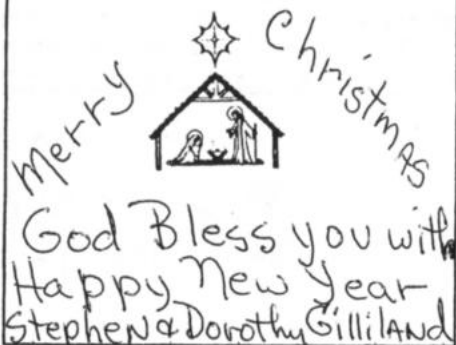 Merry Christmas
God Bless you with
Happy New Year
Stephen & Dorothy Gilliland